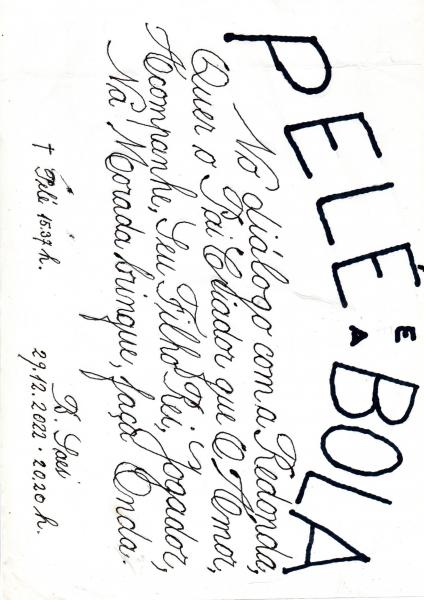 PELÉ E A BOLA
No diálogo com a Redonda,
Quer o Pai Criador que O Amor,
Acompanhe, Seu Filho Rei, Jogador,
Na Morada brinque, faça Onda.
† Pelé 15.37 h.
29.12.2022 · 20.20 h.